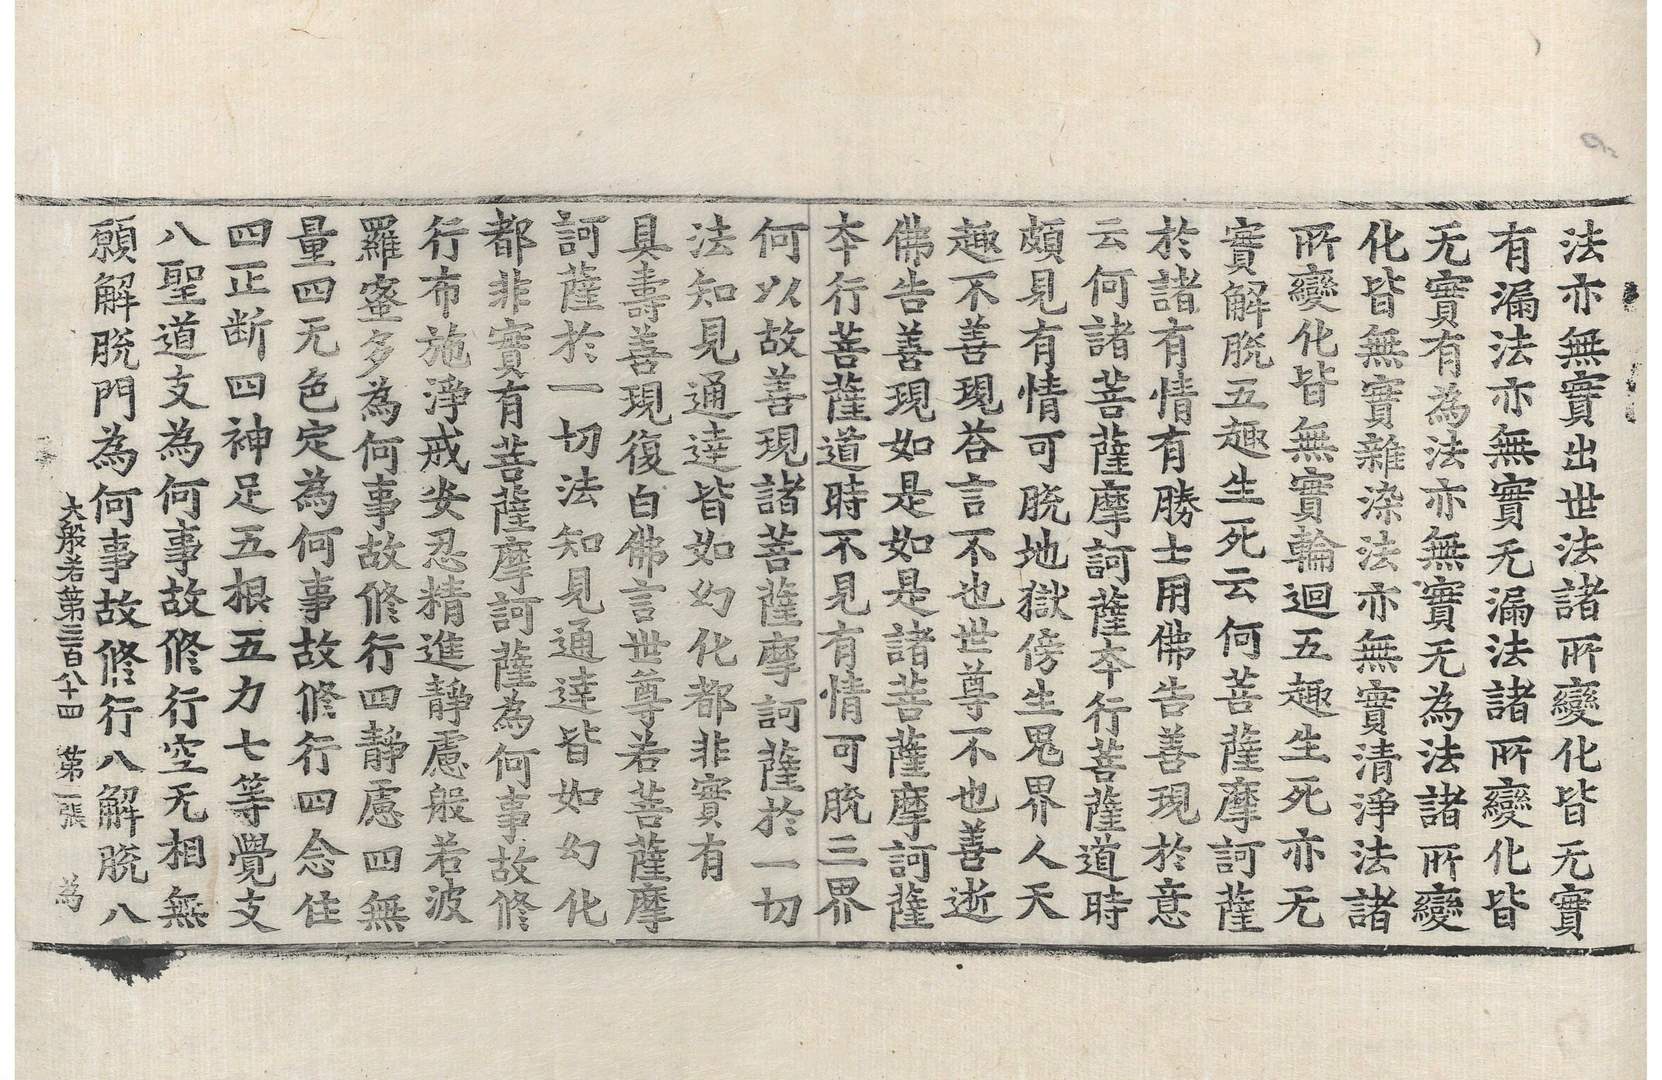 法亦無實出世法諸所變化皆无實
有漏法亦無實无漏法諸所變化皆
无實有為法亦無實无為法諸所變
化皆無實雜染法亦無實清淨法諸
所變化皆無實輪迴五趣生死亦无
實解脫五趣生死云何菩薩摩訶薩
於諸有情有勝士用佛告善現於意
云何諸菩薩摩訶薩夲行菩薩道時
頗見有情可脫地獄傍生鬼界人天
趣不善現荅言不也世尊不也善逝
佛告善現如是如是諸菩薩摩訶薩
夲行菩薩道時不見有情可脫三界
何以故善現諸菩薩摩訶薩於一切
法知見通達皆如幻化都非實有
具壽善現復白佛言世尊若菩薩摩
訶薩於一切法知見通達皆如幻化
都非實有菩薩摩訶薩為何事故修
行布施淨戒安忍精進靜慮般若波
羅蜜多為何事故修行四靜慮四無
量四无色定為何事故修行四念住
四正断四神足五根五力七等覺支
八聖道支為何事故修行空无相無
願解脫門為何事故修行八解脫八
大般若第三百八十四 第二張 為